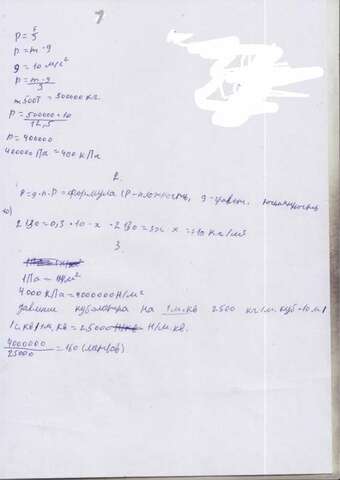 1
P = F/S
P = m · g
g = 10 м/с²
P = m · g / S
m 500т = 500000 кг.
P = 500000 · 10 / 12,5
P = 400000
400000 Па = 400 кПа
2.
P = g · h · P = формула (P - плотность, g -
2130 = 0,3 · 10 · x · 2130 = 3x x = 710 кг/м3
3.
1Па = 1Н/м²
4000 кПа = 4000000 Н/м²
давление куб метра на 1м.кв 2500 кг/м.куб · 10 м/
/с.кв/1м.кв = 25000 Н/м.кв.
4000000 / 25000 = 160 (метров)